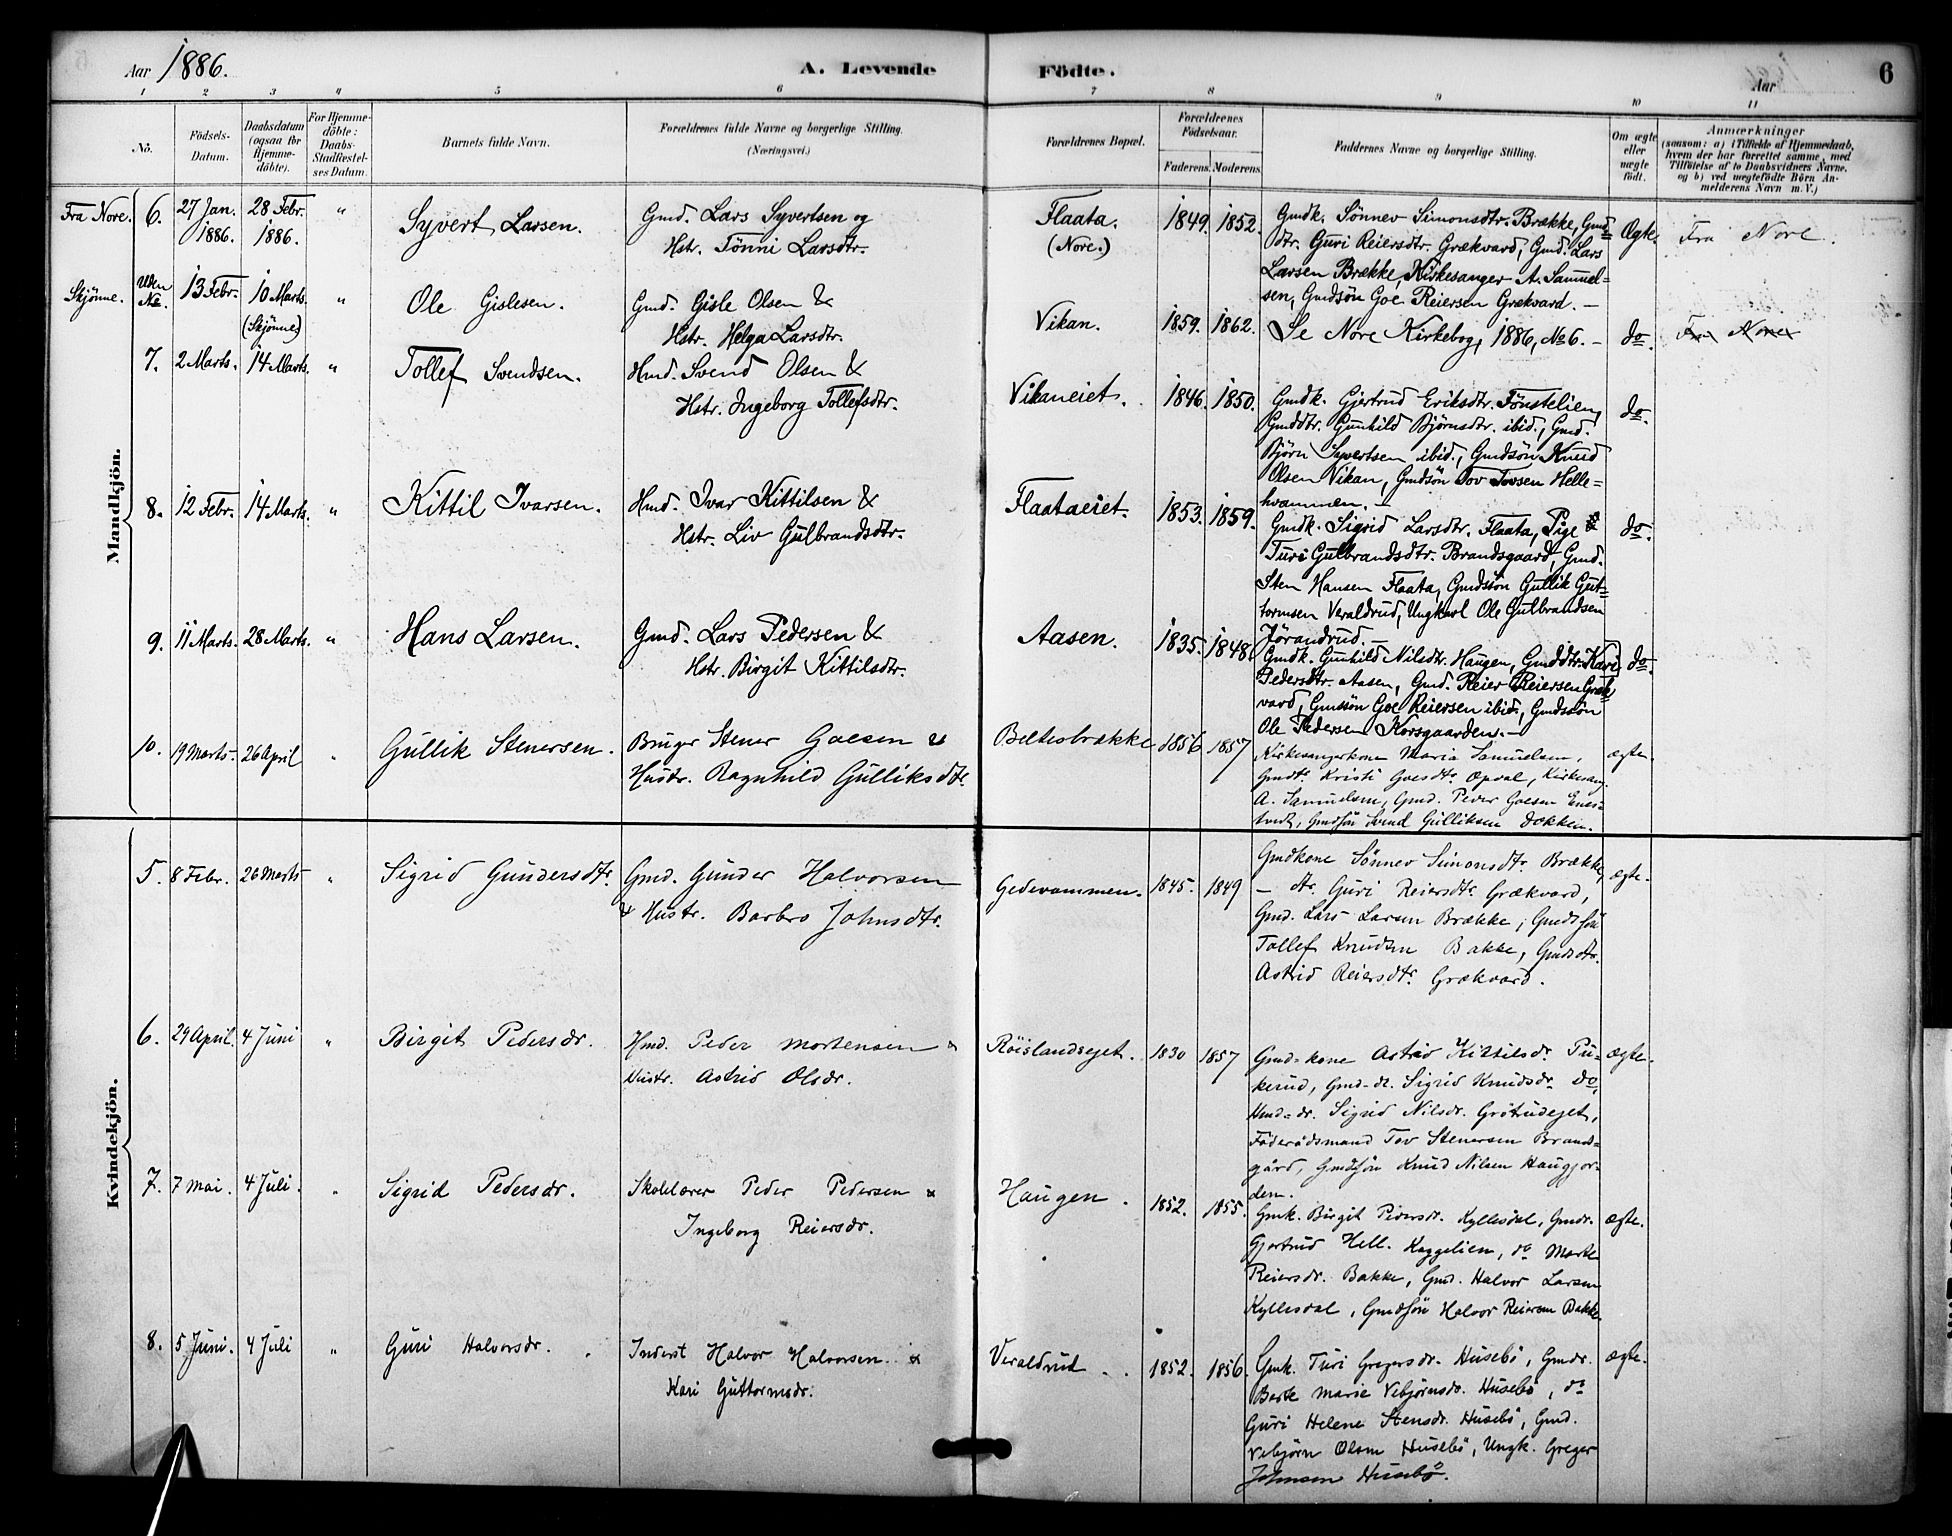 Aar 1886.
A. Levende Födte.
6
Aar
1 2 3 4 5 6 7 8 9 10 11
Nö.
Födsels-Datum.
Daabsdatum (ogsaa for Hjemme-döbte).
For Hjemme-döbte: Daabs-Stadfæstel-ses Datum.
Barnets fulde Navn.
Forældrenes fulde Navne og borgerlige Stilling.
(Næringsvei.)
Forældrenes Bopæl.
Forældrenes Födselsaar.
Faderens. Moderens.
Faddernes Navne og borgerlige Stilling.
Om ægte eller uægte födt.
Anmærkninger
(saasom: a) i Tilfælde af Hjemmedaab, hvem der har forrettet samme, med Tilföielse af to Daabsvidners Navne, og b) ved uægtefödte Börn An-melderens Navn m. V.)
Mandkjön.
Fra Nore. 6. 27 Jan. 1886. 28 Febr. 1886. " Syvert Larsen.
Gmd. Lars Syvertsen og
Hstr. Tönni Larsdtr.
Flaata.
(Nore.)
1849. 1852.
Gmdk. Sönnev Simonsdtr. Brække, Gmd=
dtr. Guri Reiersdtr. Grækvard, Gmd. Lars
Larsen Brække, Kirkesanger A. Sammel-
sen, Gmdsön Goe Reiersen Grækvard. —
Ægte.
Fra Nore.
Skjönne. Uden No. 13 Febr. 10 Marts. (Skjönne) " Ole Gislesen.
Gmd. Gisle Olsen &
Hstr. Helga Larsdtr.
Vikan.
1859. 1862.
Se Nore Kirkebog, 1886, No 6. —
do.
Fra Nore
7. 2 Marts. 14 Marts. " Tollef Svendsen.
Hmd. Svend Olsen &
Hstr. Ingeborg Tollefsdtr.
Vikaneiet.
1846. 1850.
Gmdk. Gjertrud Eriksdtr. Fönstelien,
Gmddtr. Gunhild Björnsdtr. ibid., Gmd.
Björn Syvertsen ibid., Gmdsön Knud
Olsen Vikan, Gmdsön Tov Tovsen Helle=
hvammen. —
do.
8. 12 Febr. 14 Marts. " Kittil Ivarsen.
Hmd. Ivar Kittilsen &
Hstr. Liv Gulbrandsdtr.
Flaataeiet.
1853. 1859.
Gmdk. Sigrid Larsdtr. Flaata, Pige
Turi Gulbrandsdtr. Brandsgaard, Gmd.
Sten Hansen Flaata, Gmdsön Gullik Gut=
tormsen Veraldrud, Ungkarl Ole Gulbrandsen
Jörandrud. —
do.
9. 11 Marts. 28 Marts. " Hans Larsen.
Gmd. Lars Pedersen &
Hstr. Birgit Kittilsdtr.
Aasen.
1835. 1848.
Gmdk. Gunhild Nilsdtr. Haugen, Gmddtr. Kari
Pedersdtr. Aasen, Gmd. Reier Reiersen Græk
vard, Gmdsön Goe Reiersen ibid., Gmdssön
Ole Pedersen Korsgaarden. —
do.
10. 19 Marts. 26 April " Gullik Stenersen.
Bruger Stener Goesen &
Hustr. Ragnhild Gulliksdtr.
Beltesbrække
1856 1857
Kirkesangerkone Maria Samuelsen,
Gmdtr. Kristi Goesdtr. Opdal, Kirkesang.
A. Samuelsen, Gmd. Peder Goesen
Gmdsön Svend Gulliksen Dokken.
ægte.
Kvindekjön.
5. 8 Febr. 26 Marts " Sigrid Gundersdtr.
Gmd. Gunder Halvorsen
& Hustr. Barbro Johnsdtr.
Gedevammen.
1845. 1849
Gmdkone Sönnev Simonsdtr. Brække,
— dtr. Guri Reiersdtr. Grækvard,
Gmd. Lars Larsen Brække, Gmdssön
Tollef Knudsen Bakke, Gmdsdtr.
Astrid Reiersdtr. Grækvard.
ægte.
6. 29 April. 4 Juni " Birgit Pedersdr.
Hmd. Peder Mortensen &
Hustr. Astrid Olsdr.
Röislandsejet.
1830 1857
Gmd=kone Astrid Kittilsdr. Pu=
kerud, Gmd-dr. Sigrid Knudsdr. do,
Hmd=dr. Sigrid Nilsdr. Grötudejet,
Föderådsmand Tov Stenersen Brands=
gård, Gmdsön Knud Nilsen Haugjor-
den.
ægte.
7. 7 Mai. 4 Juli. " Sigrid Pedersdr.
Skolelærer Peder Pedersen &
Ingeborg Reiersdr.
Haugen.
1852. 1855.
Gmk. Birgit Pedersdr. Kyllesdal, Gmdr.
Gjertrud Hell. Kaggelien, do Marte
Reiersdr. Bakke, Gmd. Halvor Larsen
Kyllesdal, Gmdsön Halvor Reiersen Bakke.
ægte.
8. 5 Juni. 4 Juli " Guri Halvorsdr.
Inderst Halvor Halvorsen &
Kari Guttormsdr.
Veraldrud.
1852. 1856.
Gmk. Turi Gregersdr. Husebö, Gmdr.
Berte Marie Vebjörnsdr. Husebö, do
Guri Helene Stensdr. Husebö, Gmd.
Vebjörn Olsen Husebö, Ungk. Greger
Johnsen Husebö.
ægte.